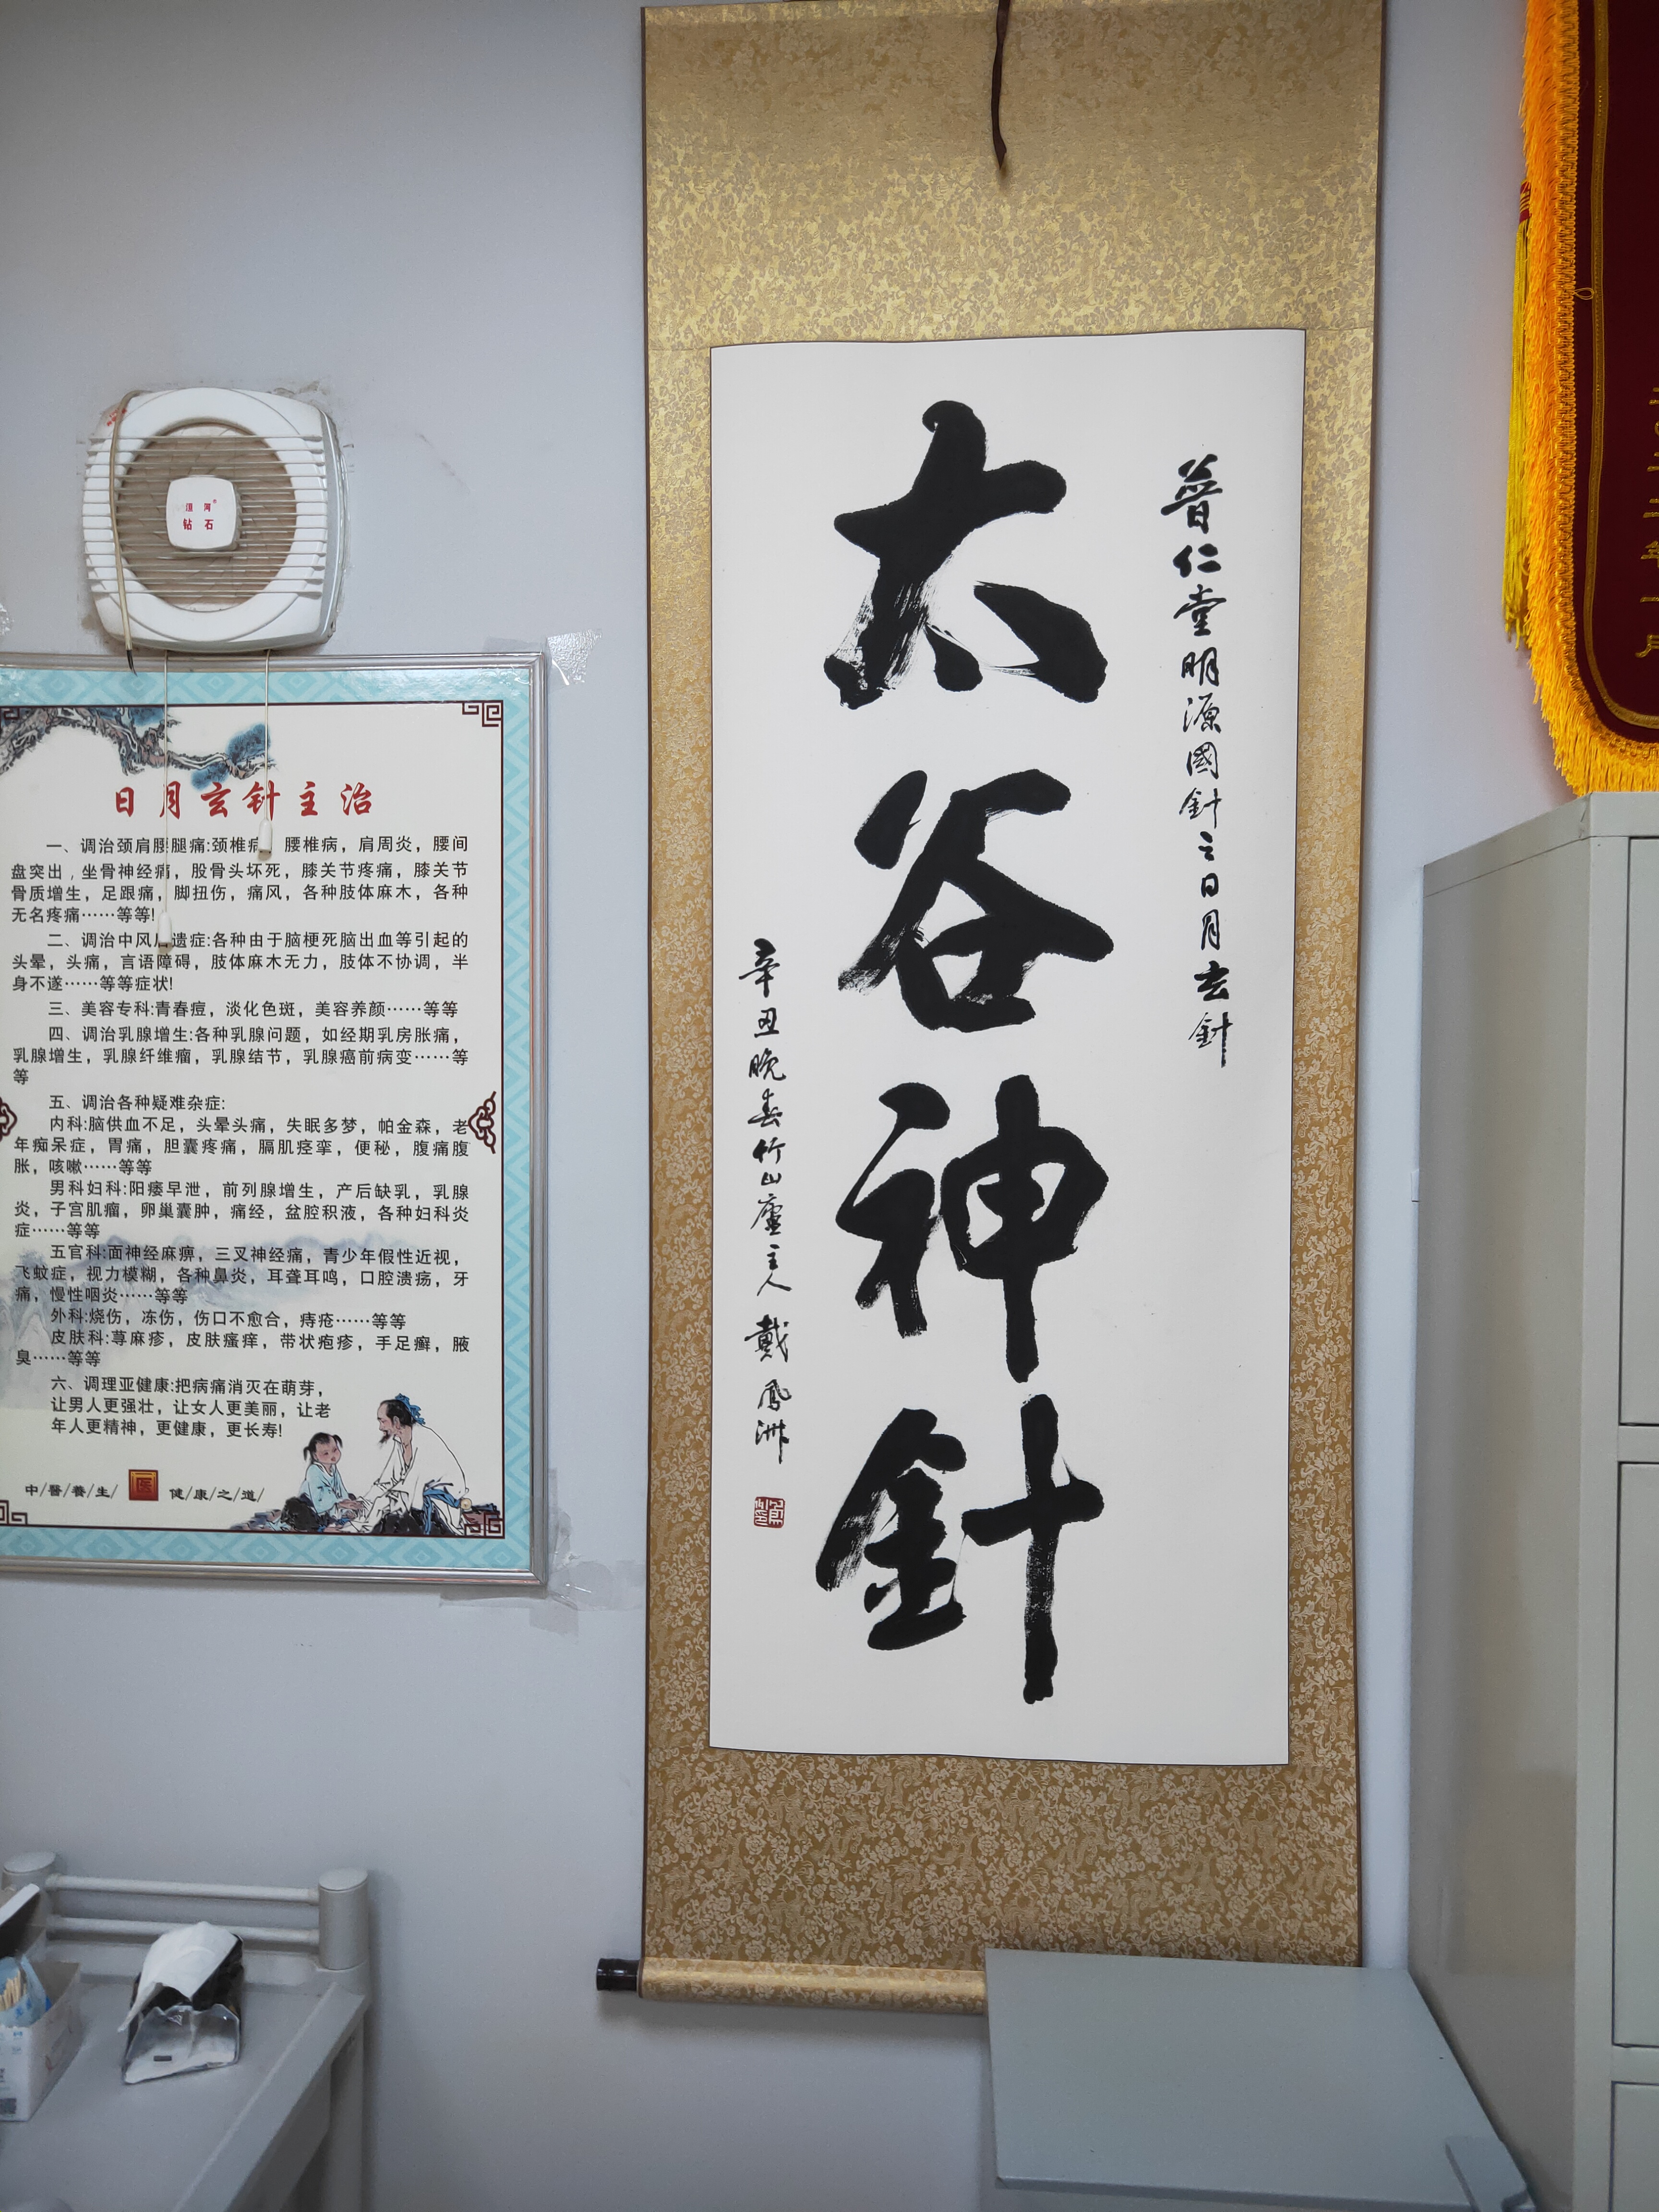 普仁堂明源國針之日月玄針
太谷神針
辛丑晚春竹山廬主人 戴鳳洲
钻石
日月玄针主治
一、调治颈肩腰腿痛:颈椎病 腰椎病，肩周炎，腰间
盘突出，坐骨神经痛，股骨头坏死，膝关节疼痛，膝关节
骨质增生，足跟痛，脚扭伤，痛风，各种肢体麻木，各种
无名疼痛……等等!
二、调治中风后遗症:各种由于脑梗死脑出血等引起的
头晕，头痛，言语障碍，肢体麻木无力，肢体不协调，半
身不遂……等等症状!
三、美容专科:青春痘，淡化色斑，美容养颜……等等
四、调治乳腺增生:各种乳腺问题，如经期乳房胀痛，
乳腺增生，乳腺纤维瘤，乳腺结节，乳腺癌前病变……等
等
五、调治各种疑难杂症:
内科:脑供血不足，头晕头痛，失眠多梦，帕金森，老
年痴呆症，胃痛，胆囊疼痛，膈肌痉挛，便秘，腹痛腹
胀，咳嗽……等等
男科妇科:阳痿早泄，前列腺增生，产后缺乳，乳腺
炎，子宫肌瘤，卵巢囊肿，痛经，盆腔积液，各种妇科炎
症……等等
五官科:面神经麻痹，三叉神经痛，青少年假性近视，
飞蚊症，视力模糊，各种鼻炎，耳聋耳鸣，口腔溃疡，牙
痛，慢性咽炎……等等
外科:烧伤，冻伤，伤口不愈合，痔疮……等等
皮肤科:荨麻疹，皮肤瘙痒，带状疱疹，手足癣，腋
臭……等等
六、调理亚健康:把病痛消灭在萌芽，
让男人更强壮，让女人更美丽，让老
年人更精神，更健康，更长寿!
中/醫/養/生/ 医 健/康/之/道/